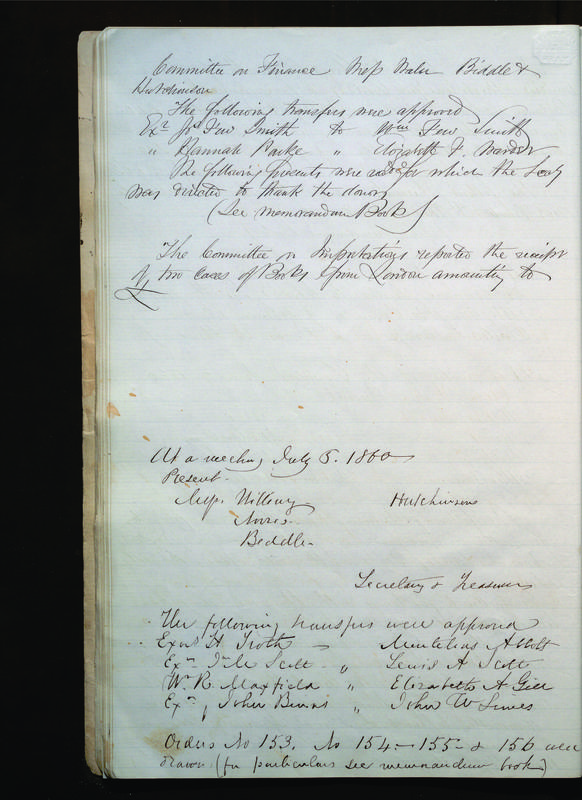 Committee on Finance Mess Biddle &
Hutchinson
The following transfers were approved
Exr Few Smith to Wm Few Smith
" Hannah Parke " Elizabeth F.
The following presents were recd for which the Secy
was directed to thank the donors
(See memorandum Book)
The Committee on Importations reported the receipt
of two Cases of Books from London amounting to
£
At a meeting July 5. 1860
Present
Messrs Willing Hutchinson
Norris
Biddle
Secretary & Treasurer
The following transfers were approved
Exrs H. Troth Abbott
Exrs Scott " Lewis A Scott
W. R. Maxfield " Elizabeth A Gill
Exr John Binns " John W Simes
Orders No 153. No 154 — 155 - & 156 were
drawn (for particulars see memorandum book)